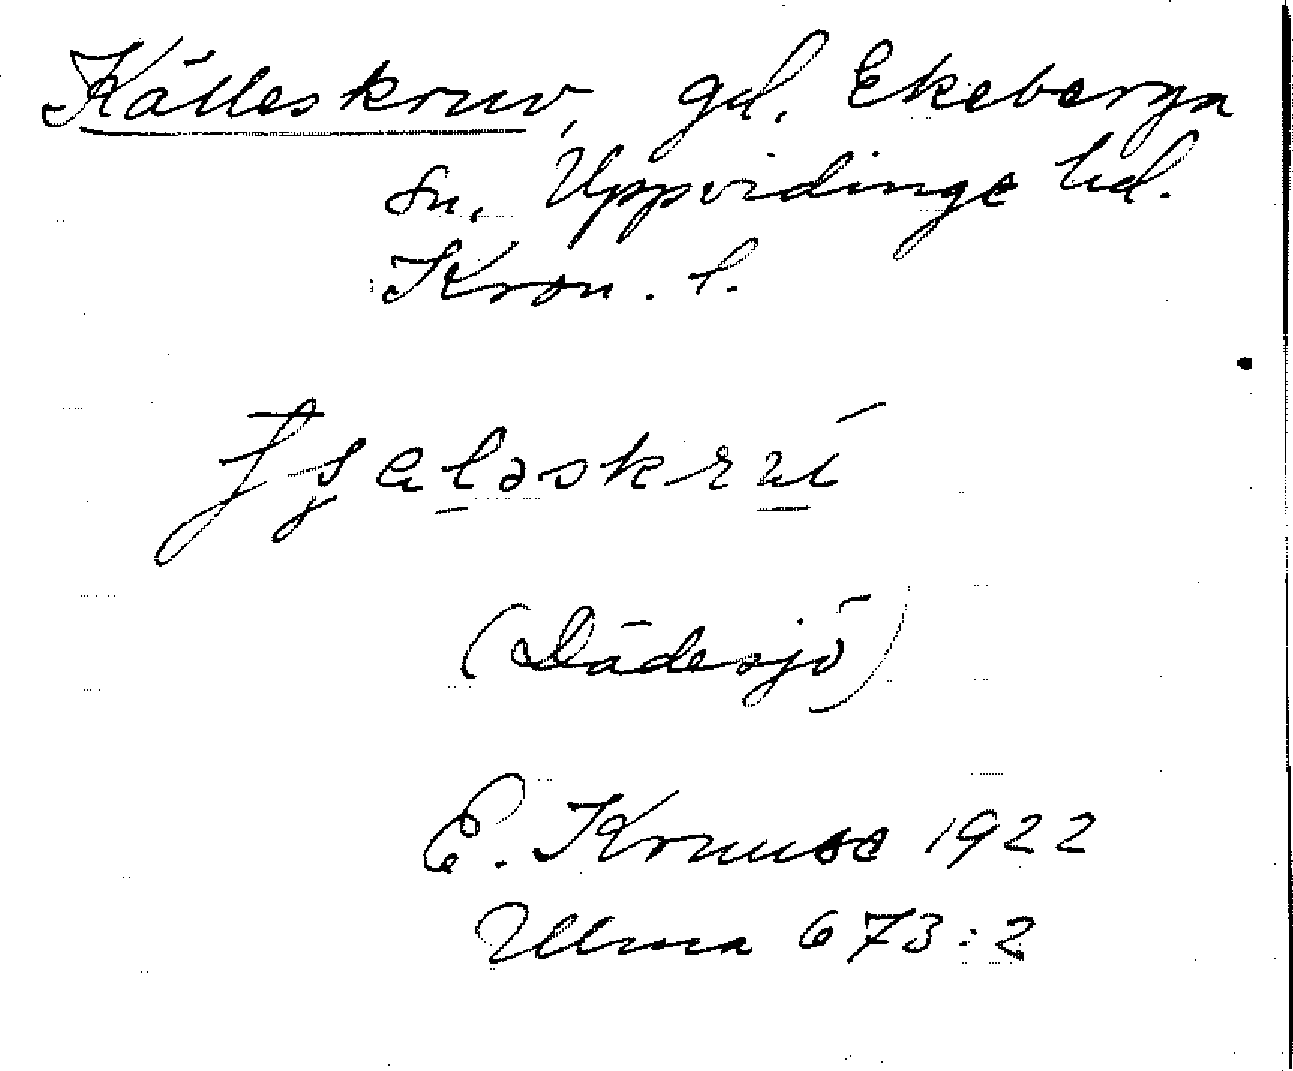 Källeskruv, gd. Ekeberga
sn, Uppvidinge hd.
Kron. l.
(Dädesjö)
E. Kruuse 1922
Ulma 673:2